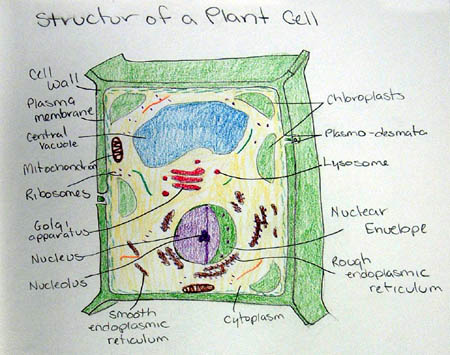 Structur of a Plant Cell
Cell
Wall
Plasma
membrane
Central
vacuole
Mitochondrion
Ribosomes
Golgi
apparatus
Nucleus
Nucleolus
Smooth
endoplasmic
reticulum
Cytoplasm
Chloroplasts
Plasmo-desmata
Lysosome
Nuclear
Envelope
Rough
endoplasmic
reticulum